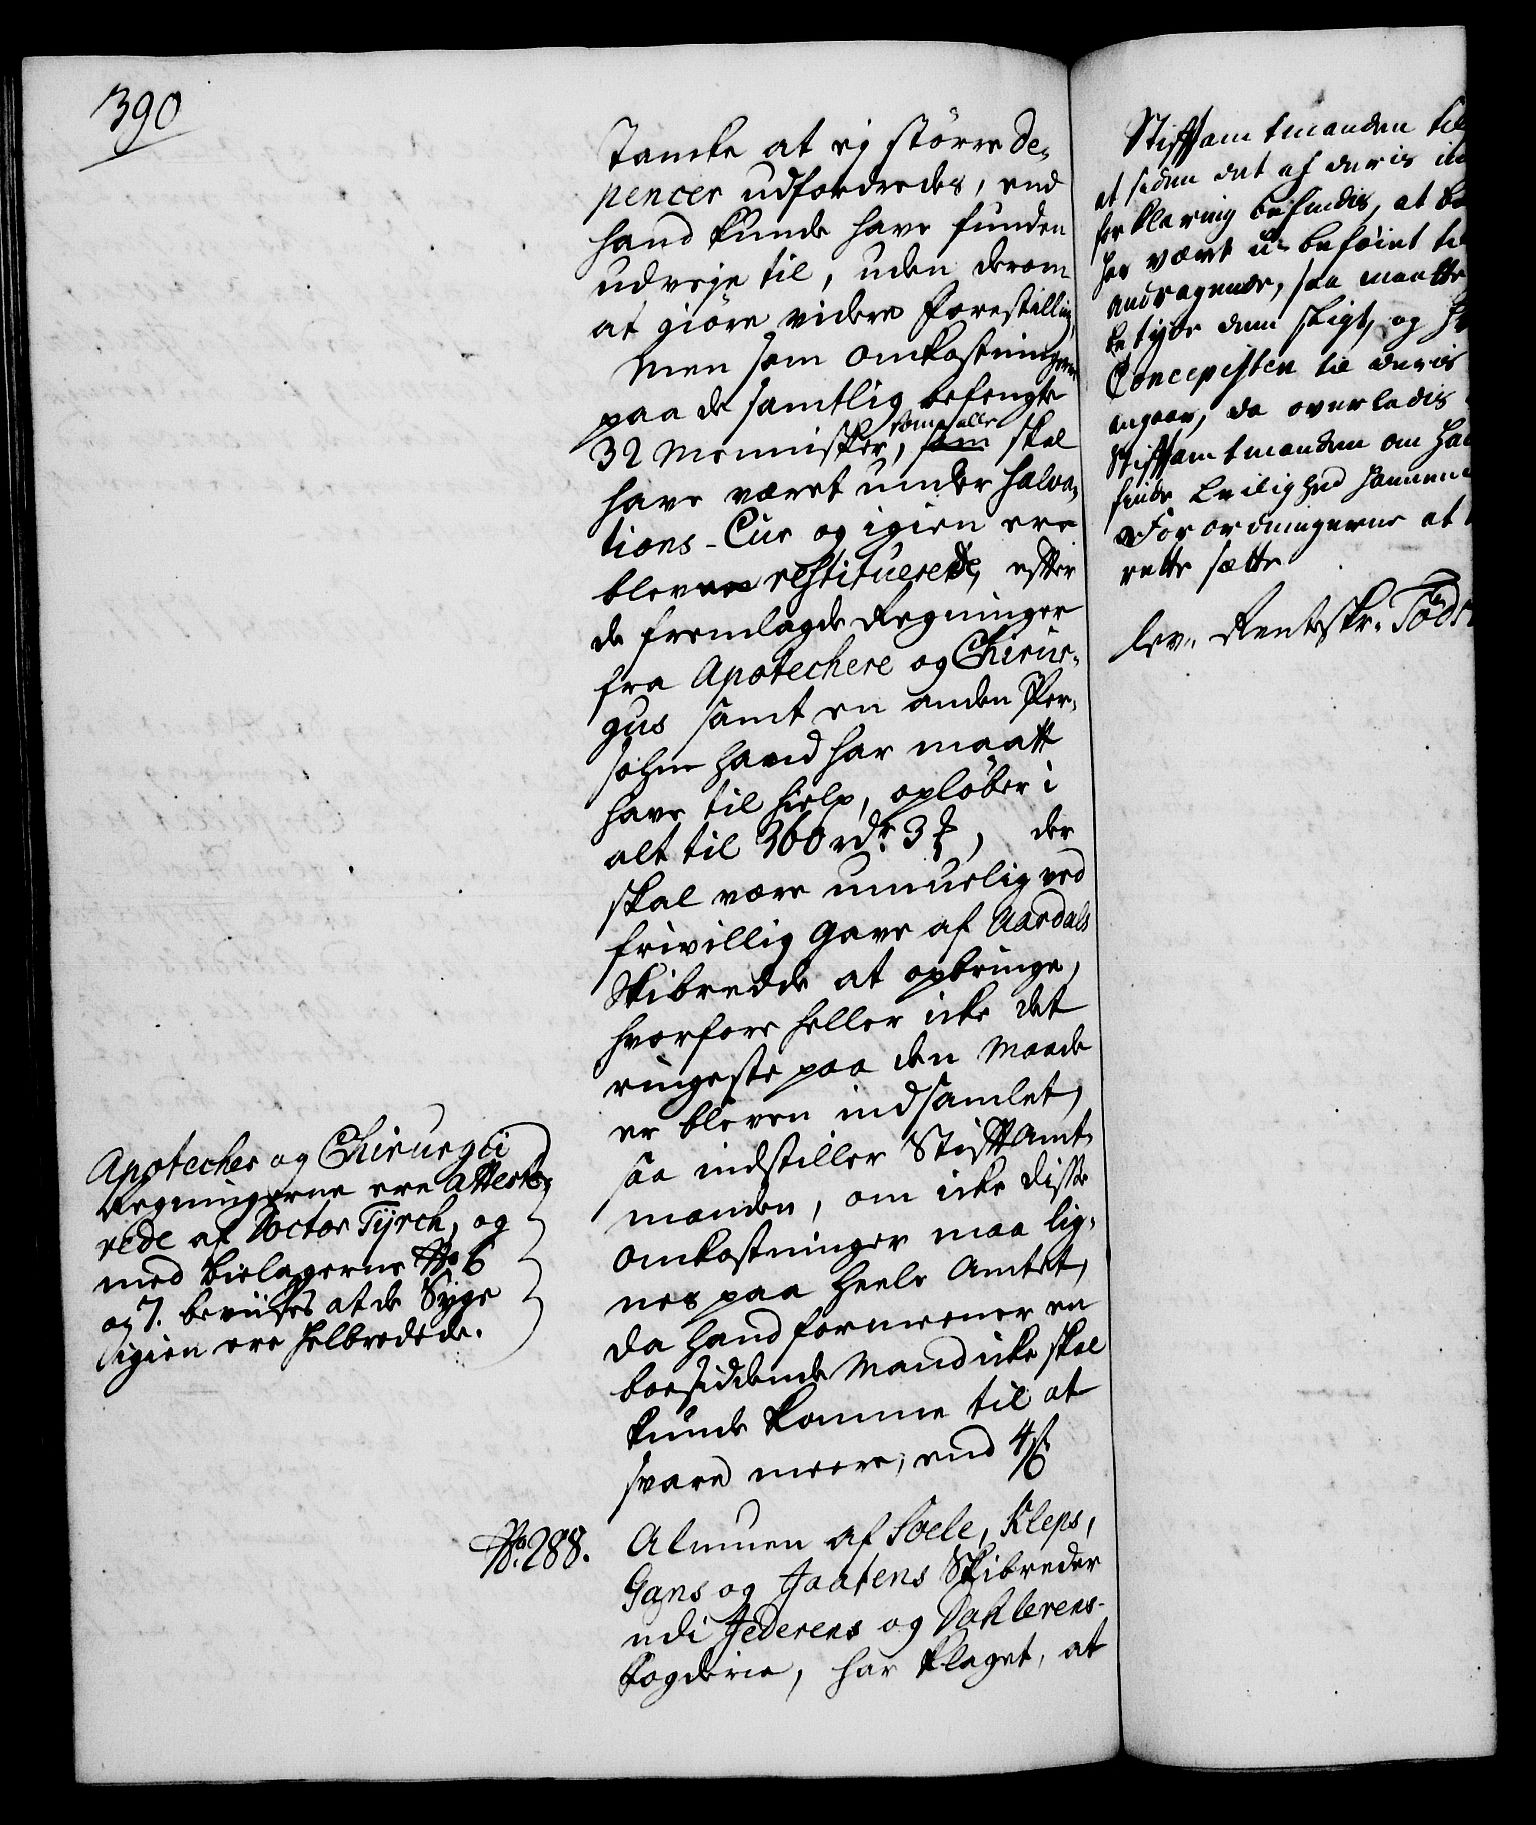 390
Tancke at ej större De-
pencer udfordredes, end
hand kunde have funden
udveje til, uden derom
at giöre videre Forestilling,
Men som Omkostningerne
paa de samtlig befengte
32 Mennisker, som alle skal
have været under Saliva-
tions-Cur og igien ere
bleven restituerede, efter
de fremlagde Regninger
fra Apotechere og Chirur-
gus samt en anden Per-
sohn hand har maatt
have til hielp, opløber i
alt til 360 rdr. 3 ß, der
skal være umuelig ved
frivillig Gave af Aardals
Skibredde at opbringe,
hvorfore heller icke det
ringeste paa den Maade
er bleven indsamlet,
saa indstiller Stiftamt-
manden, om icke disse
Omkostninger maa lig-
nes paa heele Amtet,
da hand formeener en
boesiddende Mand icke skal
kunde komme til at
svare meere, end 4 ß
Apotecher og Chirurgii
Regningerne ere atteste-
rede af Doctor Tyrch, og
med Bielagerne No 6
og 7. beviises at de Syge
igien ere helbredede.
No. 288.
Almuen af Soele, Kleps,
Gans og Jaatens Skibreder
udi Jederens og Dahlerens
Fogderie, har klaget, at
Stiftsamtmanden til
at siden det af deris
forklaring befindes, at
har været u-beføiet
andragende, saa maatte
betyde dem sligt, og
Concepisten til deris
angaar, da overlades
Stiftsamtmanden om
finde Leilighed hannem
Forordningerne at
rette sætte
lev. Rentskr.